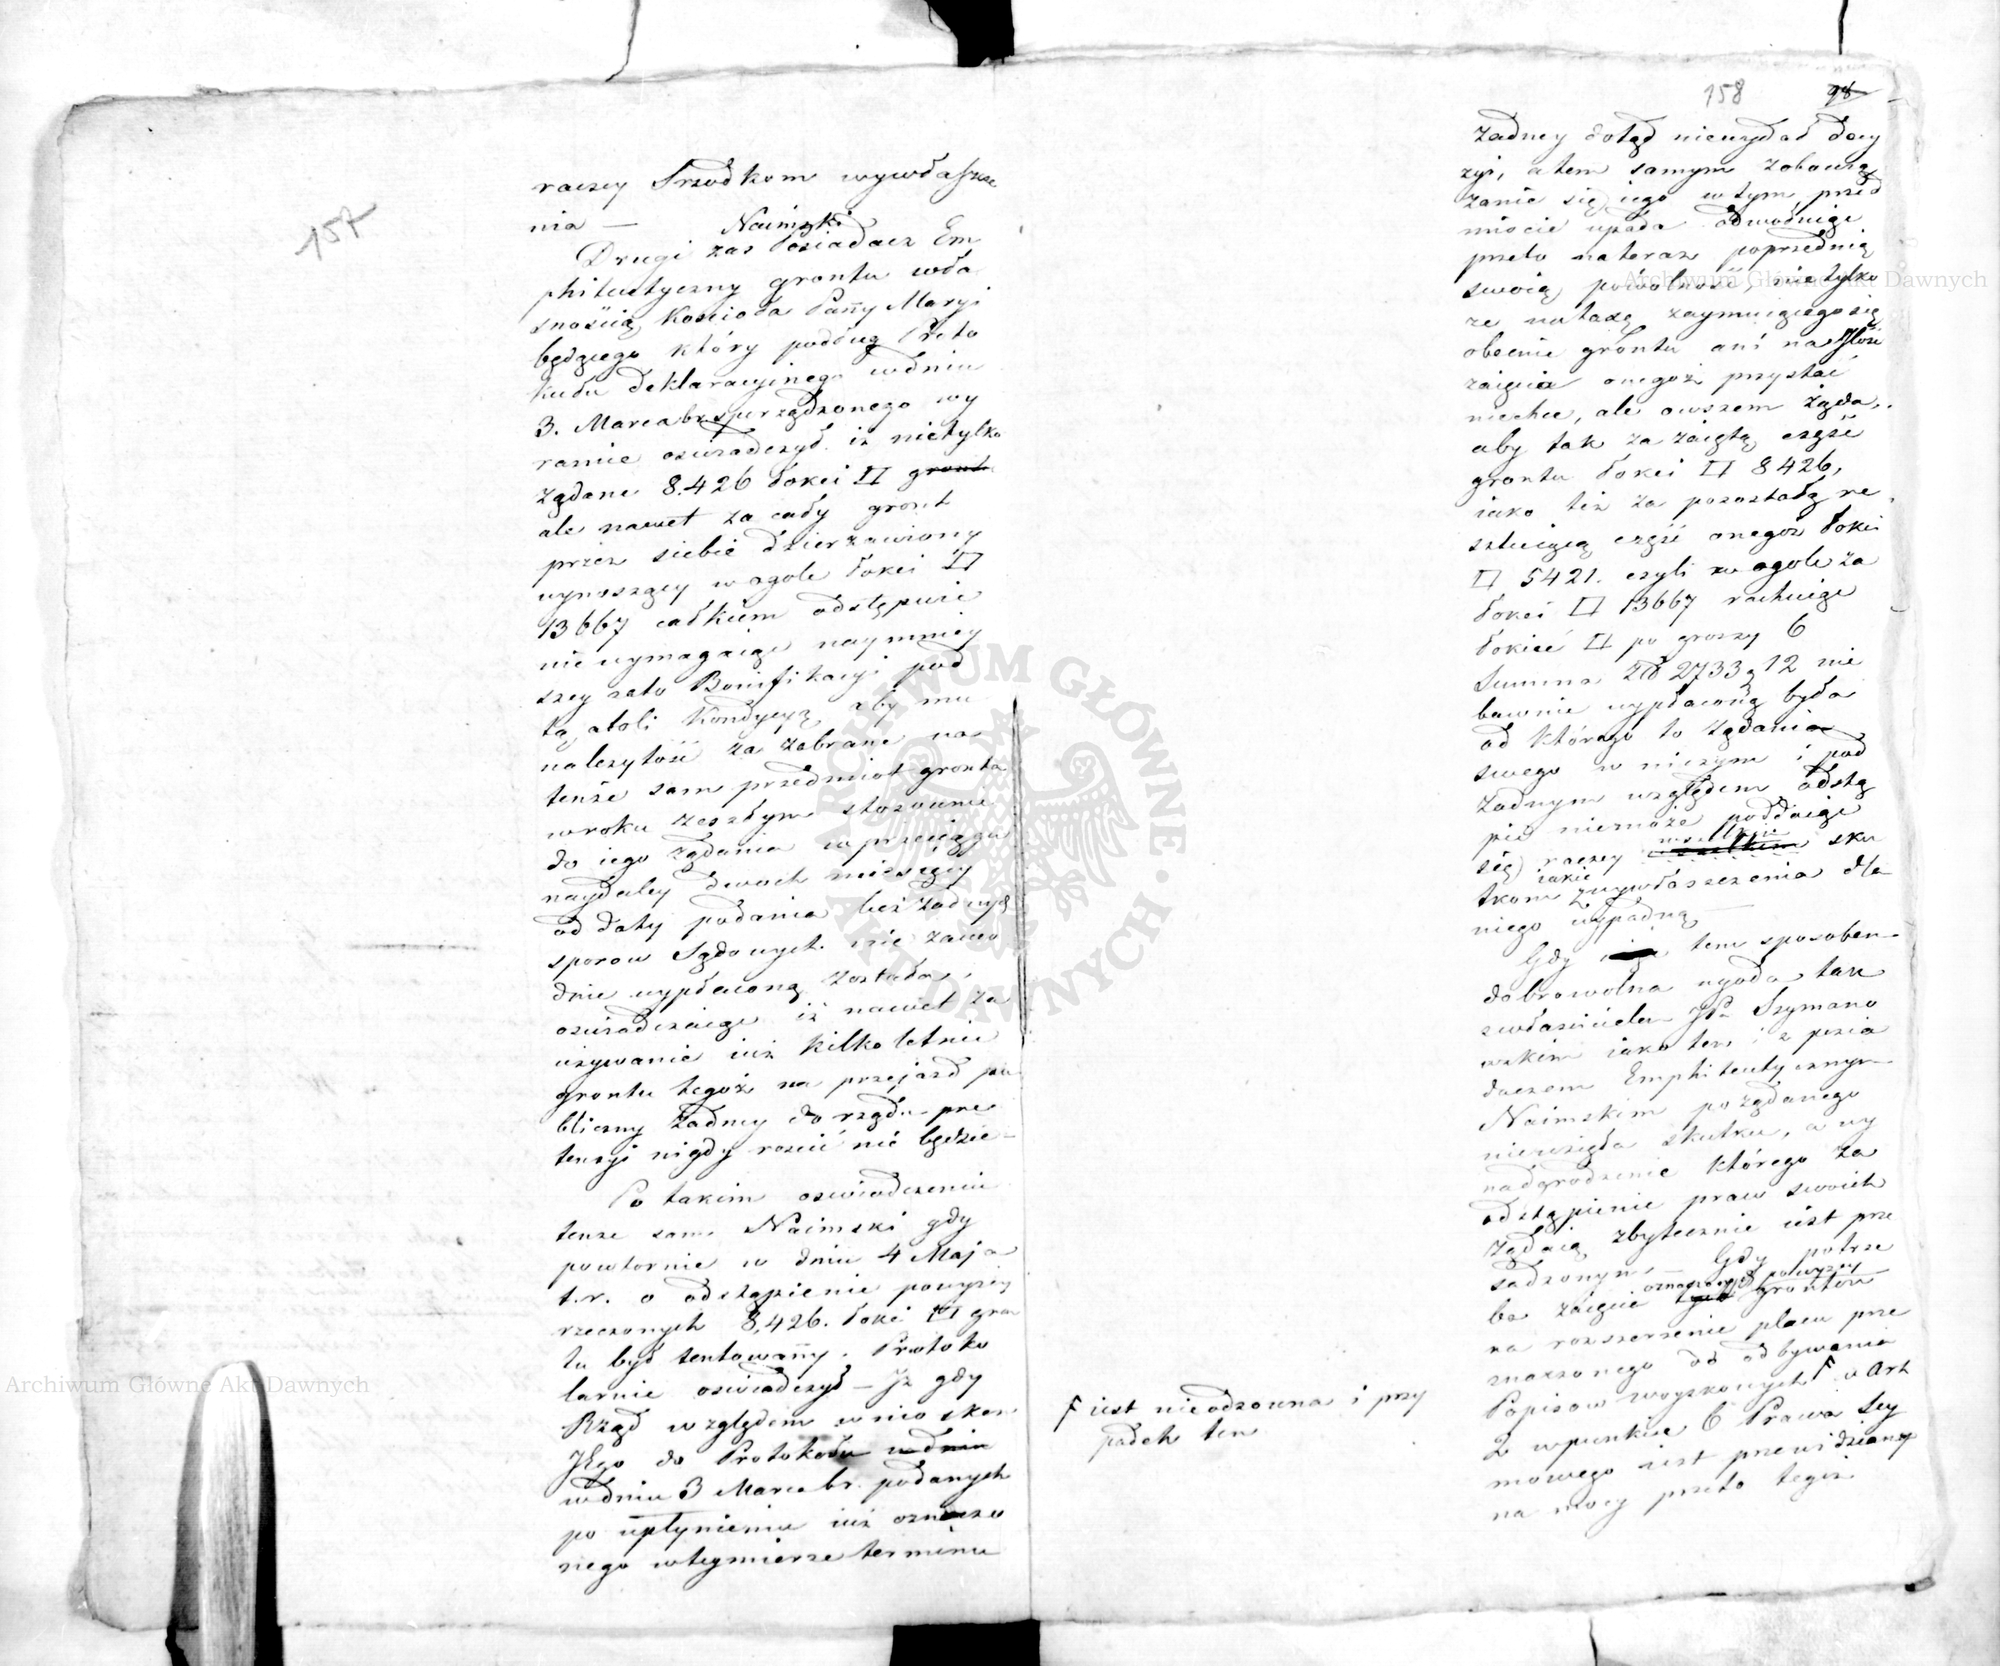 157
raczey Srzodkom wywłaszcze
nia —
Naimski
Drugi zas Posiadacz Em
phiteutyczny grontu wła
snością Koscioła Panny Maryi
będącego który podług Proto
kułu deklaracyinego w dniu
3. Marca br. sporządzonego wy
raznie oswiadczył iż nietylko
żądane 8.426 łokci □ gront
ale nawet za cały gront
przez siebie dzierzawiony
wynoszący w ogole łokci □
13667 całkiem odstępuie
nie wymagaiąc naymniey
szey zato Bonifikacyi pod
tą atoli Kondycyą aby mu
należytość za zabrane na
tenże sam przedmiot gronta
w roku zeszłym stosownie
do iego żądania w przeciągu
naydaley dwoch miesięcy
od daty podania bez żadnych
sporow Sądowych niezawo
dnie wypłaconą została,
oswiadczaiąc iż nawet za
używanie iuż kilkoletnie
grontu tegoż na przejazd pu
bliczny żadney do rządu pre
tensyi nigdy roscić nie będzie —
Po takim oswiadczeniu
tenże sam Naimski gdy
powtornie w dniu 4 Maja
t.r. o odstąpienie powyżey
rzeczonych 8,426. łokci □ gron
tu był tentowany. Protoku
larnie oswiadczył — Iż gdy
Rząd względem wniosków
Jego do Protokołu w dniu
w dniu 3 Marca br. podanych
po upłynieniu iuż oznaczo
nego w tey mierze terminu
158 98
żadney dotąd niewydał decy
zyi, a tem samym zobowią
zanie się iego w tym przed
miocie upada odwołuiąc
przeto nateraz poprzednią
swoią powolność, nietylko
ze na taxę zaymuiącego się
obecnie grontu ani na
zaięcia onegoż przystać
niechce, ale owszem żąda,
aby tak za zaiętą część
grontu łokci □ 8426,
iako też za pozostałą re
sztuiącą część onegoż łokci
□ 5421. czyli w ogole za
łokci □ 13667 rachuiąc
łokieć □ po groszy 6
Summa Zł 2733 g 12 nie
bawnie wypłaconą była
od którego to żądania
swego w niczym i pod
żadnym względem odstą
pić niemoże poddaiąc
się raczey wszelkim sku
tkom iakie z wywłaszczenia dla
niego wypadną —
Gdy tem sposobem
dobrowolna ugoda tak
z właścicielem JP. Szymano
wskim iako też i z posia
daczem Emphiteutycznym
Naimskim pożądanego
niewzięła skutku, a wy
nadgrodzenie którego za
odstąpienie praw swoich
żądaią zbytecznie iest prze
sadzonym — Gdy potrze
ba zaięcia oznaczonych powyżey grontów
na rozszerzenie placu prze
znaczonego do odbywania
Popisow woyskowych F a Art
2 w punkcie 6 Prawa Sey
mowego iest przewidziany
na mocy przeto tegoż
F iest nieodzowna i przy
padek ten
Archiwum Główne Akt Dawnych
Archiwum Główne Akt Dawnych
ARCHIWUM GŁÓWNE AKT DAWNYCH